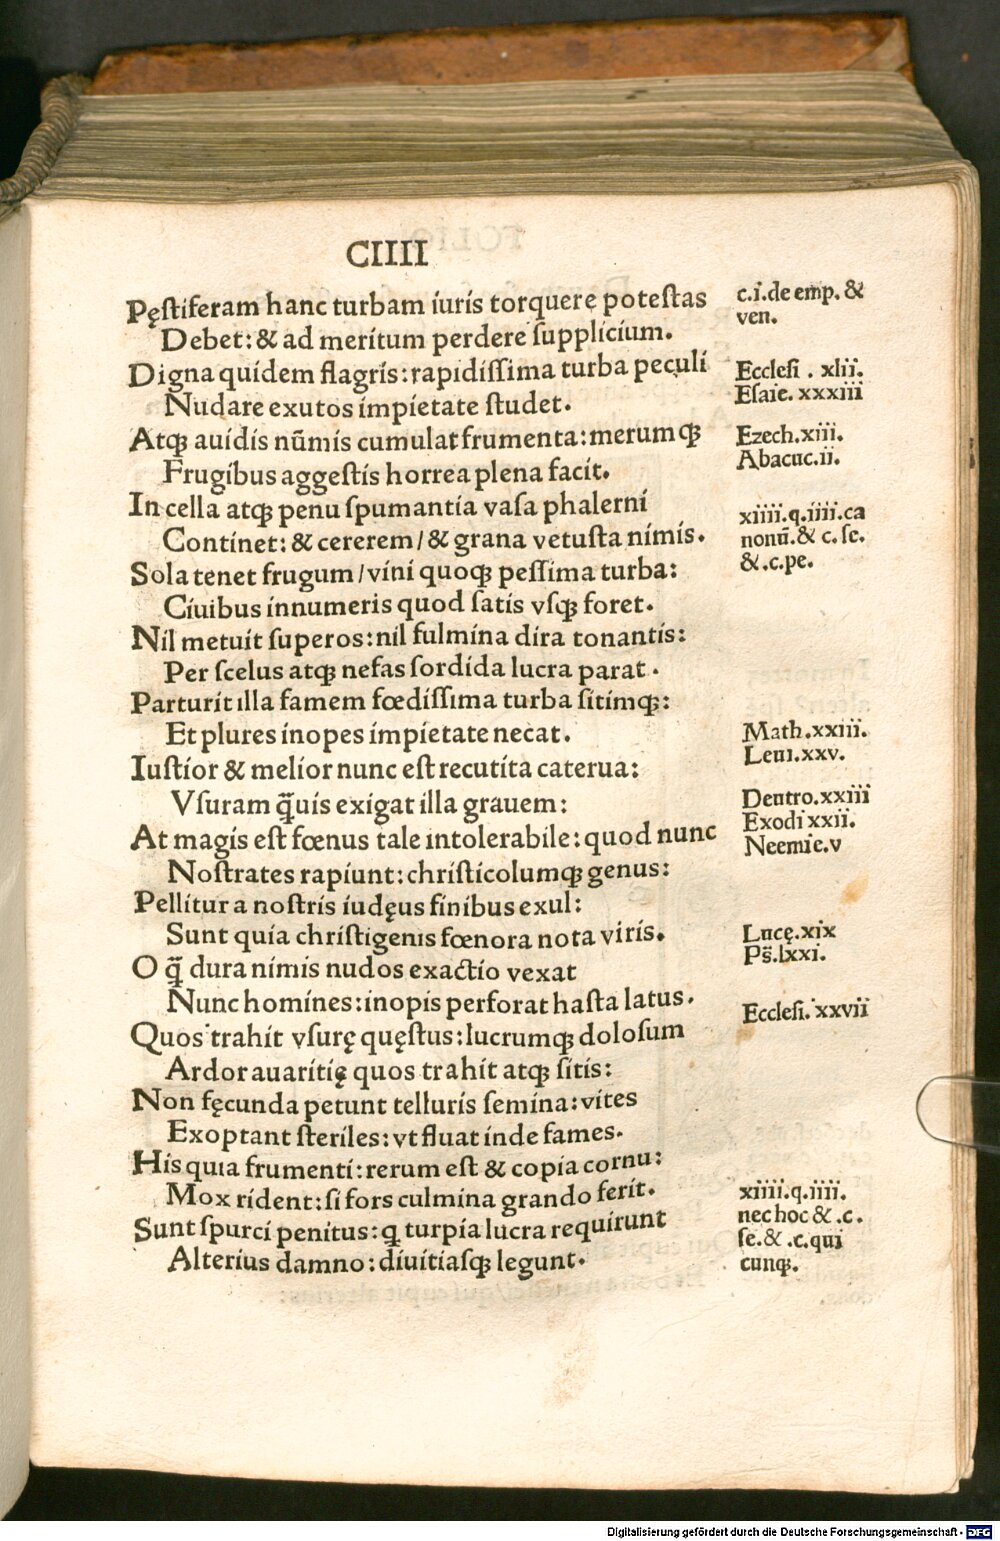 CIIII
Pęstiferam hanc turbam iuris torquere potestas
Debet: & ad meritum perdere supplicium.
Digna quidem flagris: rapidissima turba peculi
Nudare exutos impietate studet.
Atqꝫ auidis nūmis cumulat frumenta: merumqꝫ
Frugibus aggestis horrea plena facit.
In cella atqꝫ penu spumantia vasa phalerni
Continet: & cererem / & grana vetusta nimis.
Sola tenet frugum / vini quoqꝫ pessima turba:
Ciuibus innumeris quod satis vsqꝫ foret.
Nil metuit superos: nil fulmina dira tonantis:
Per scelus atqꝫ nefas sordida lucra parat.
Parturit illa famem fœdissima turba sitimqꝫ:
Et plures inopes impietate necat.
Iustior & melior nunc est recutita caterua:
Vsuram q̃uis exigat illa grauem:
At magis est fœnus tale intolerabile: quod nunc
Nostrates rapiunt: christicolumqꝫ genus:
Pellitur a nostris iudęus finibus exul:
Sunt quia christigenis fœnora nota viris.
O q̃ dura nimis nudos exactio vexat
Nunc homines: inopis perforat hasta latus.
Quos trahit vsurę quęstus: lucrumqꝫ dolosum
Ardor auaritię quos trahit atqꝫ sitis:
Non fęcunda petunt telluris semina: vites
Exoptant steriles: vt fluat inde fames.
His quia frumenti: rerum est & copia cornu:
Mox rident: si fors culmina grando ferit.
Sunt spurci penitus: ꝗ turpia lucra requirunt
Alterius damno: diuitiasqꝫ legunt.
c.i.de emp. &
ven.
Ecclesi . xlii.
Esaie. xxxiii
Ezech.xiii.
Abacuc.ii.
xiiii.q.iiii.ca
nonū.& c. se.
&.c.pe.
Math.xxiii.
Leui.xxv.
Deutro.xxiii
Exodi xxii.
Neemie.v
Lucę.xix
Ps̄.lxxi.
Ecclesi. xxvii
xiiii.q.iiii.
nec hoc & .c.
se.& .c.qui
cunqꝫ.
Digitalisierung gefördert durch die Deutsche Forschungsgemeinschaft - DFG